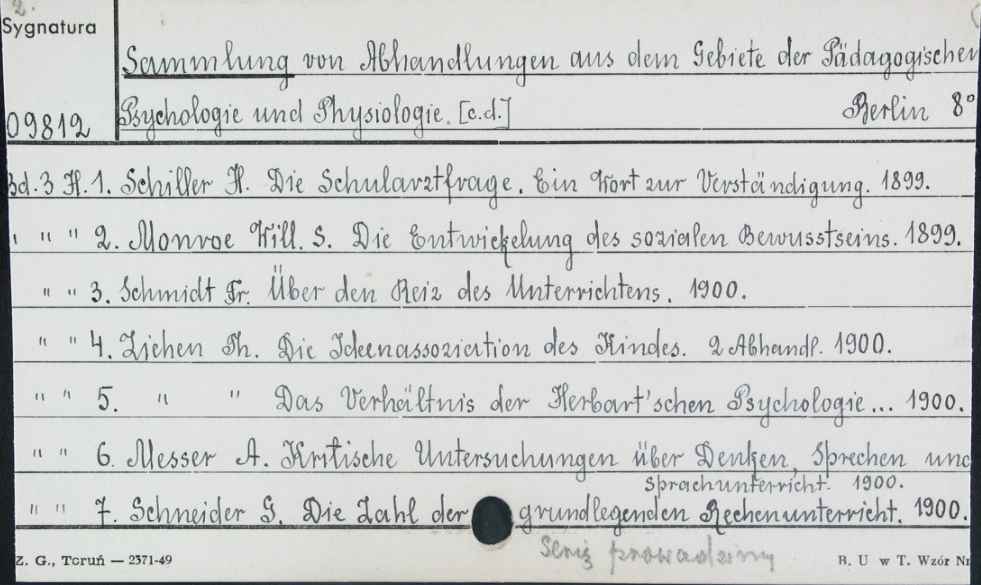 2.
Sygnatura
Sammlung von Abhandlungen aus dem Gebiete der Pädagogischen
09812
Psychologie und Physiologie. [c.d.] Berlin 8°
Bd. 3 H. 1. Schiller H. Die Schularztfrage. Ein Wort zur Verständigung. 1899.
" " " 2. Monroe Will. S. Die Entwickelung des sozialen Bewusstseins. 1899.
" " 3. Schmidt Fr. Über den Reiz des Unterrichtens. 1900.
" " 4. Ziehen Th. Die Ideenassoziation des Kindes. 2 Abhandl. 1900.
" " 5. " " Das Verhältnis der Herbart'schen Psychologie... 1900.
" " 6. Messer A. Kritische Untersuchungen über Denken, Sprechen und
Sprachunterricht. 1900.
" " 7. Schneider G. Die Zahl der grundlegenden Rechenunterricht. 1900.
Serię prowadzimy
Z. G., Toruń — 2371-49 B. U w T. Wzór Nr